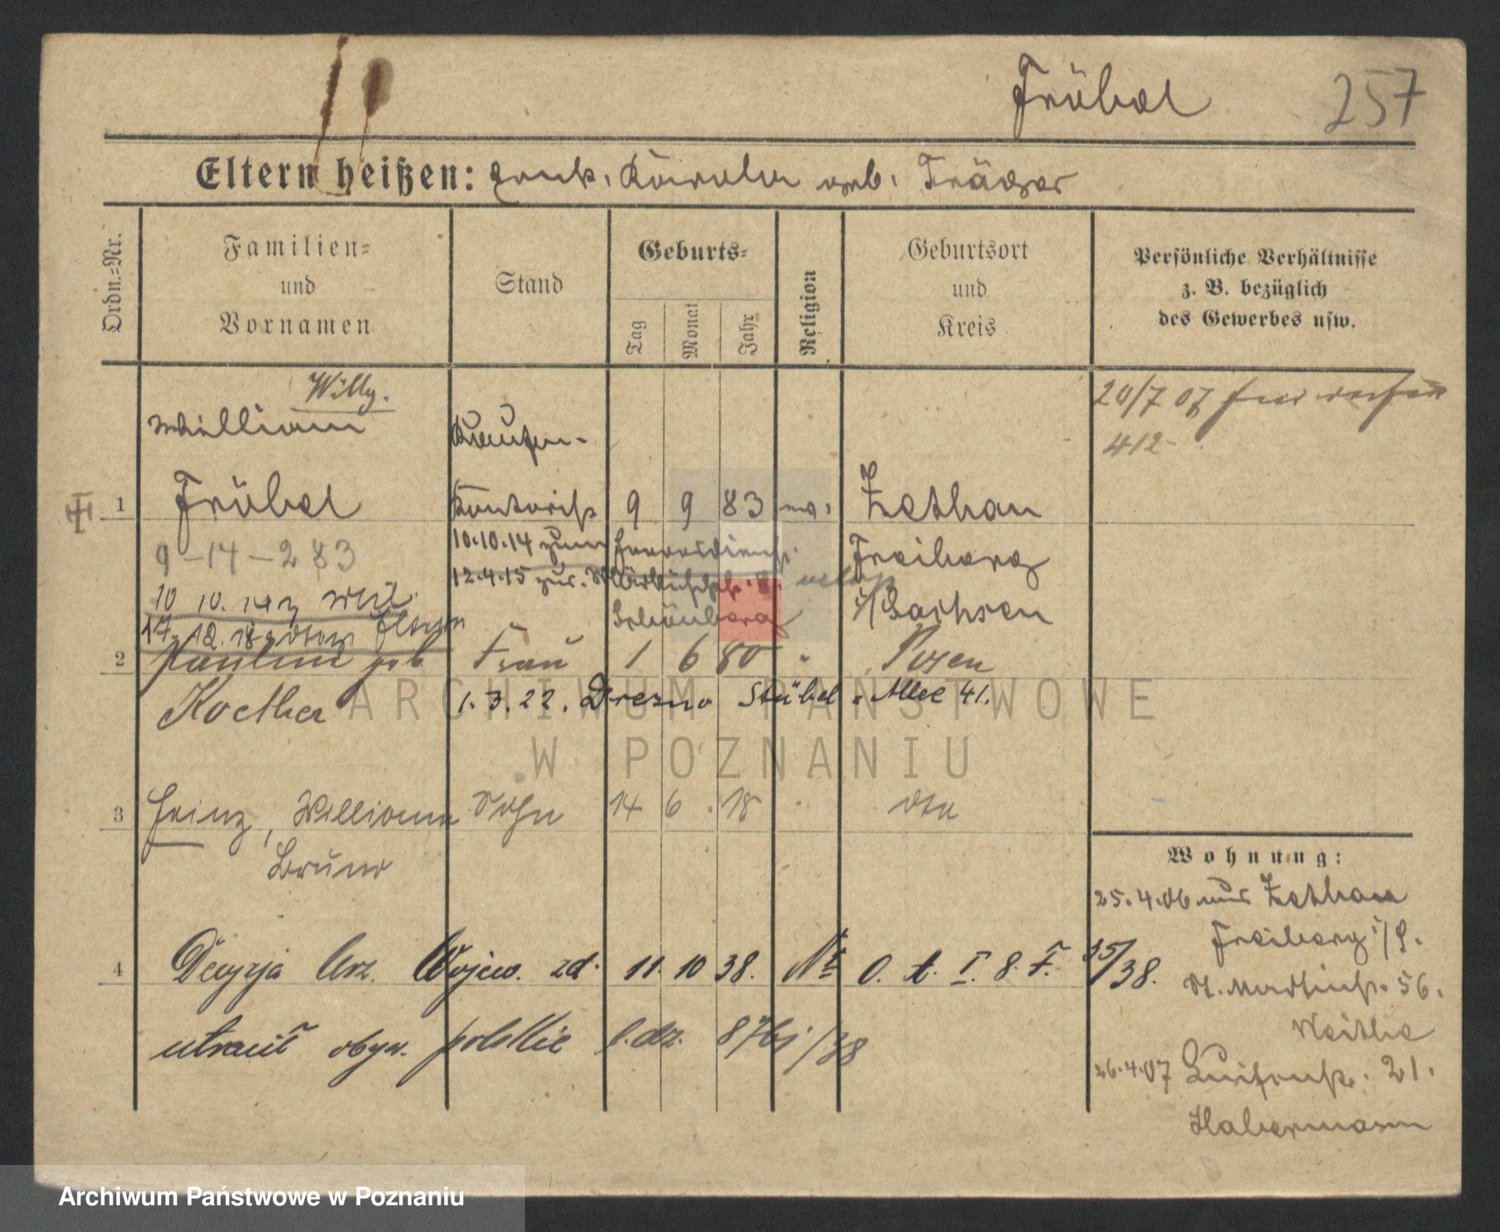 Fröbel 257
Eltern heißen: Karoline geb. Träger
Ordn.=Nr.
Familien=
und
Vornamen
Stand
Geburts=
Tag
Monat
Jahr
Religion
Geburtsort
und
Kreis
Persönliche Verhältnisse
z. B. bezüglich
des Gewerbes usw.
Willy.
William
Kaufm-
20/7 07
412
1 Fröbel Kontorist 9 9 83 ev. Zethau
9-14-283
10.10.14 zum Heeresdienst. Freiberg
12.4.15 zur. i/Sachsen
10 10. 14
Schönberg
2 Pauline geb Frau 1 6 80 " Posen
Koether 1.3.22. Drezno Stübel-Allee 41.
3 Heinz, William Sohn 14 6. 18 " dto
Bruno
4 Decyzją Urz. Wojew. zd. 11. 10 38. № O. t. I. 8. F. 35/38.
utracił obyw. polskie l.dz. 876j/38
Wohnung:
25.4.06 aus Zethau
Freiberg i/S.
St. Martinstr. 56.
26.4.07 Luisenstr. 21.
Habermann
ARCHIWUM PAŃSTWOWE
W POZNANIU
Archiwum Państwowe w Poznaniu